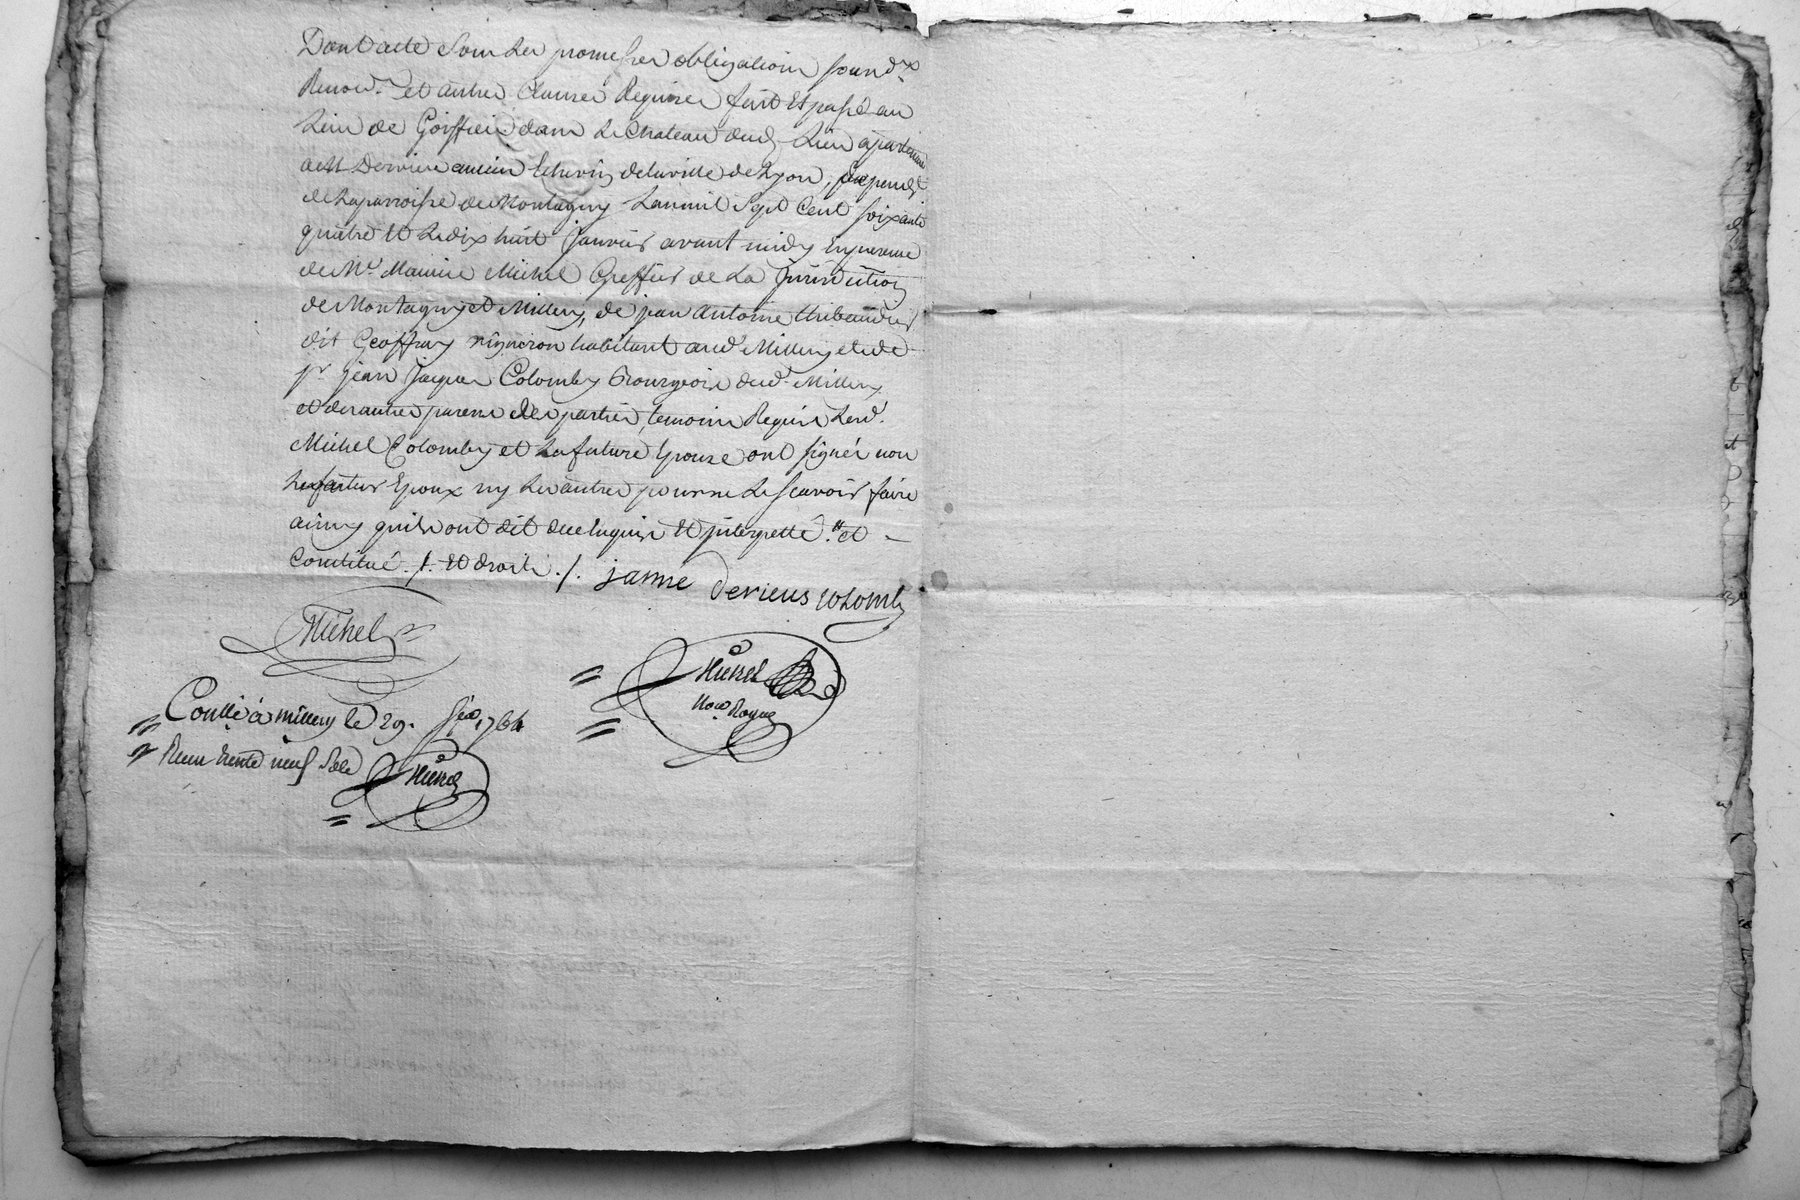 Dont acte sour les promesses obligations soumd.^s
Renon.^s et autres Clauses Requises fait et passé au
lieu de Goiffieu dans le Chateau dud. Lieu apartenant
a M Derrieu ancien Echevin de la ville de Lyon, depend.^t
de la parroisse de Montagny L'an mil Sept Cent soixante
quatre et le dix huit Janvier avant midy En presence
de M.^e Maurice Michel Greffier de la Jurisdiction
de Montagny et Millery, de jean antoine thibaudier
dit Geoffray vigneron habitant aud.^t Millery et de
s.^r jean Jacques Colomby Bourgeois dud. Millery
et des autres parens des parties, temoins Requis Lesd.^s
Michel Colomby et La future Epouse ont signé non
le futur Epoux ny les autres pour ne le scavoir faire
ainsy quils ont dit de ce Enquis et interpellé .^tt et
Constitué ./. et droits ./. janne derieus colomby
Michel
Michel
No.^re Royal
Conllé à millery le 29. 1764
Reçu trente neuf Sols
Michel